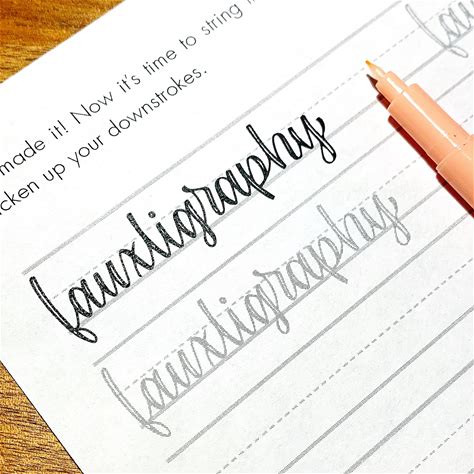 made it! Now it's time to string
icken up your downstrokes.
fauxligraphy
fauxligraphy
fa